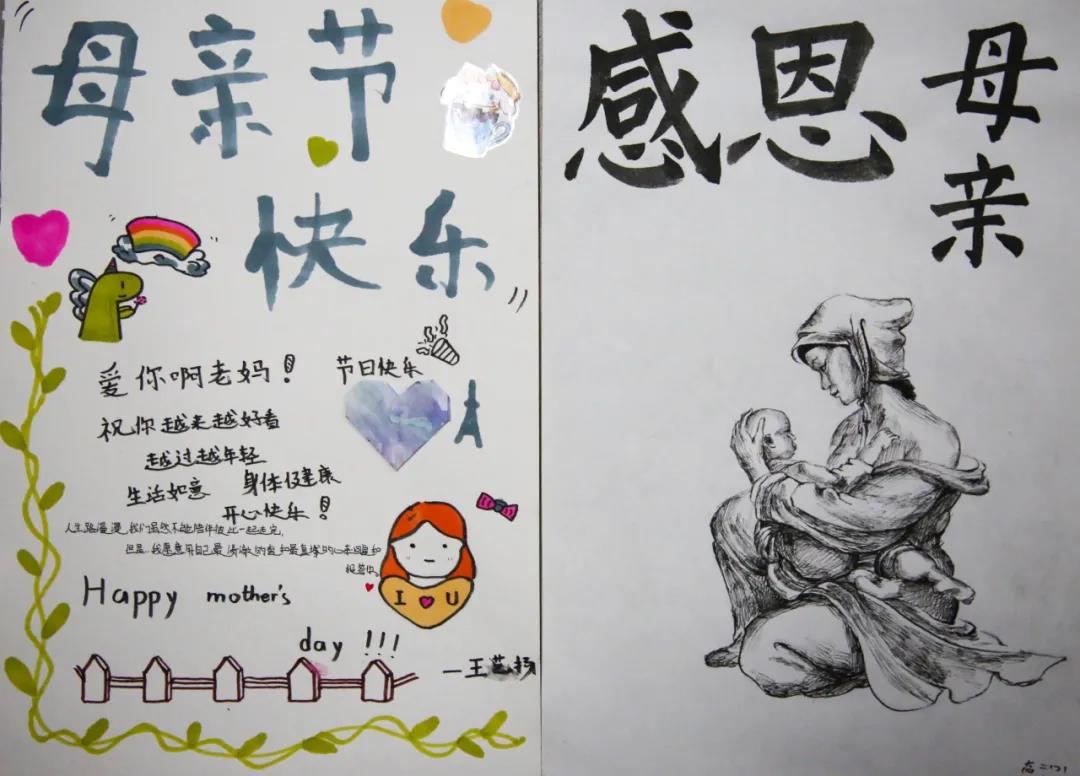 母亲节
快乐
爱你啊老妈！
节日快乐
祝你越来越好看
越过越年轻
生活如意 身体健康
开心快乐！
人生路漫漫,我们虽然不能陪伴彼此一起走完,
但是,我愿意用自己最 的爱和最真挚的心来回首和
Happy mother's
day !!!
I U
—王 扬
感恩
母亲
高二(7)